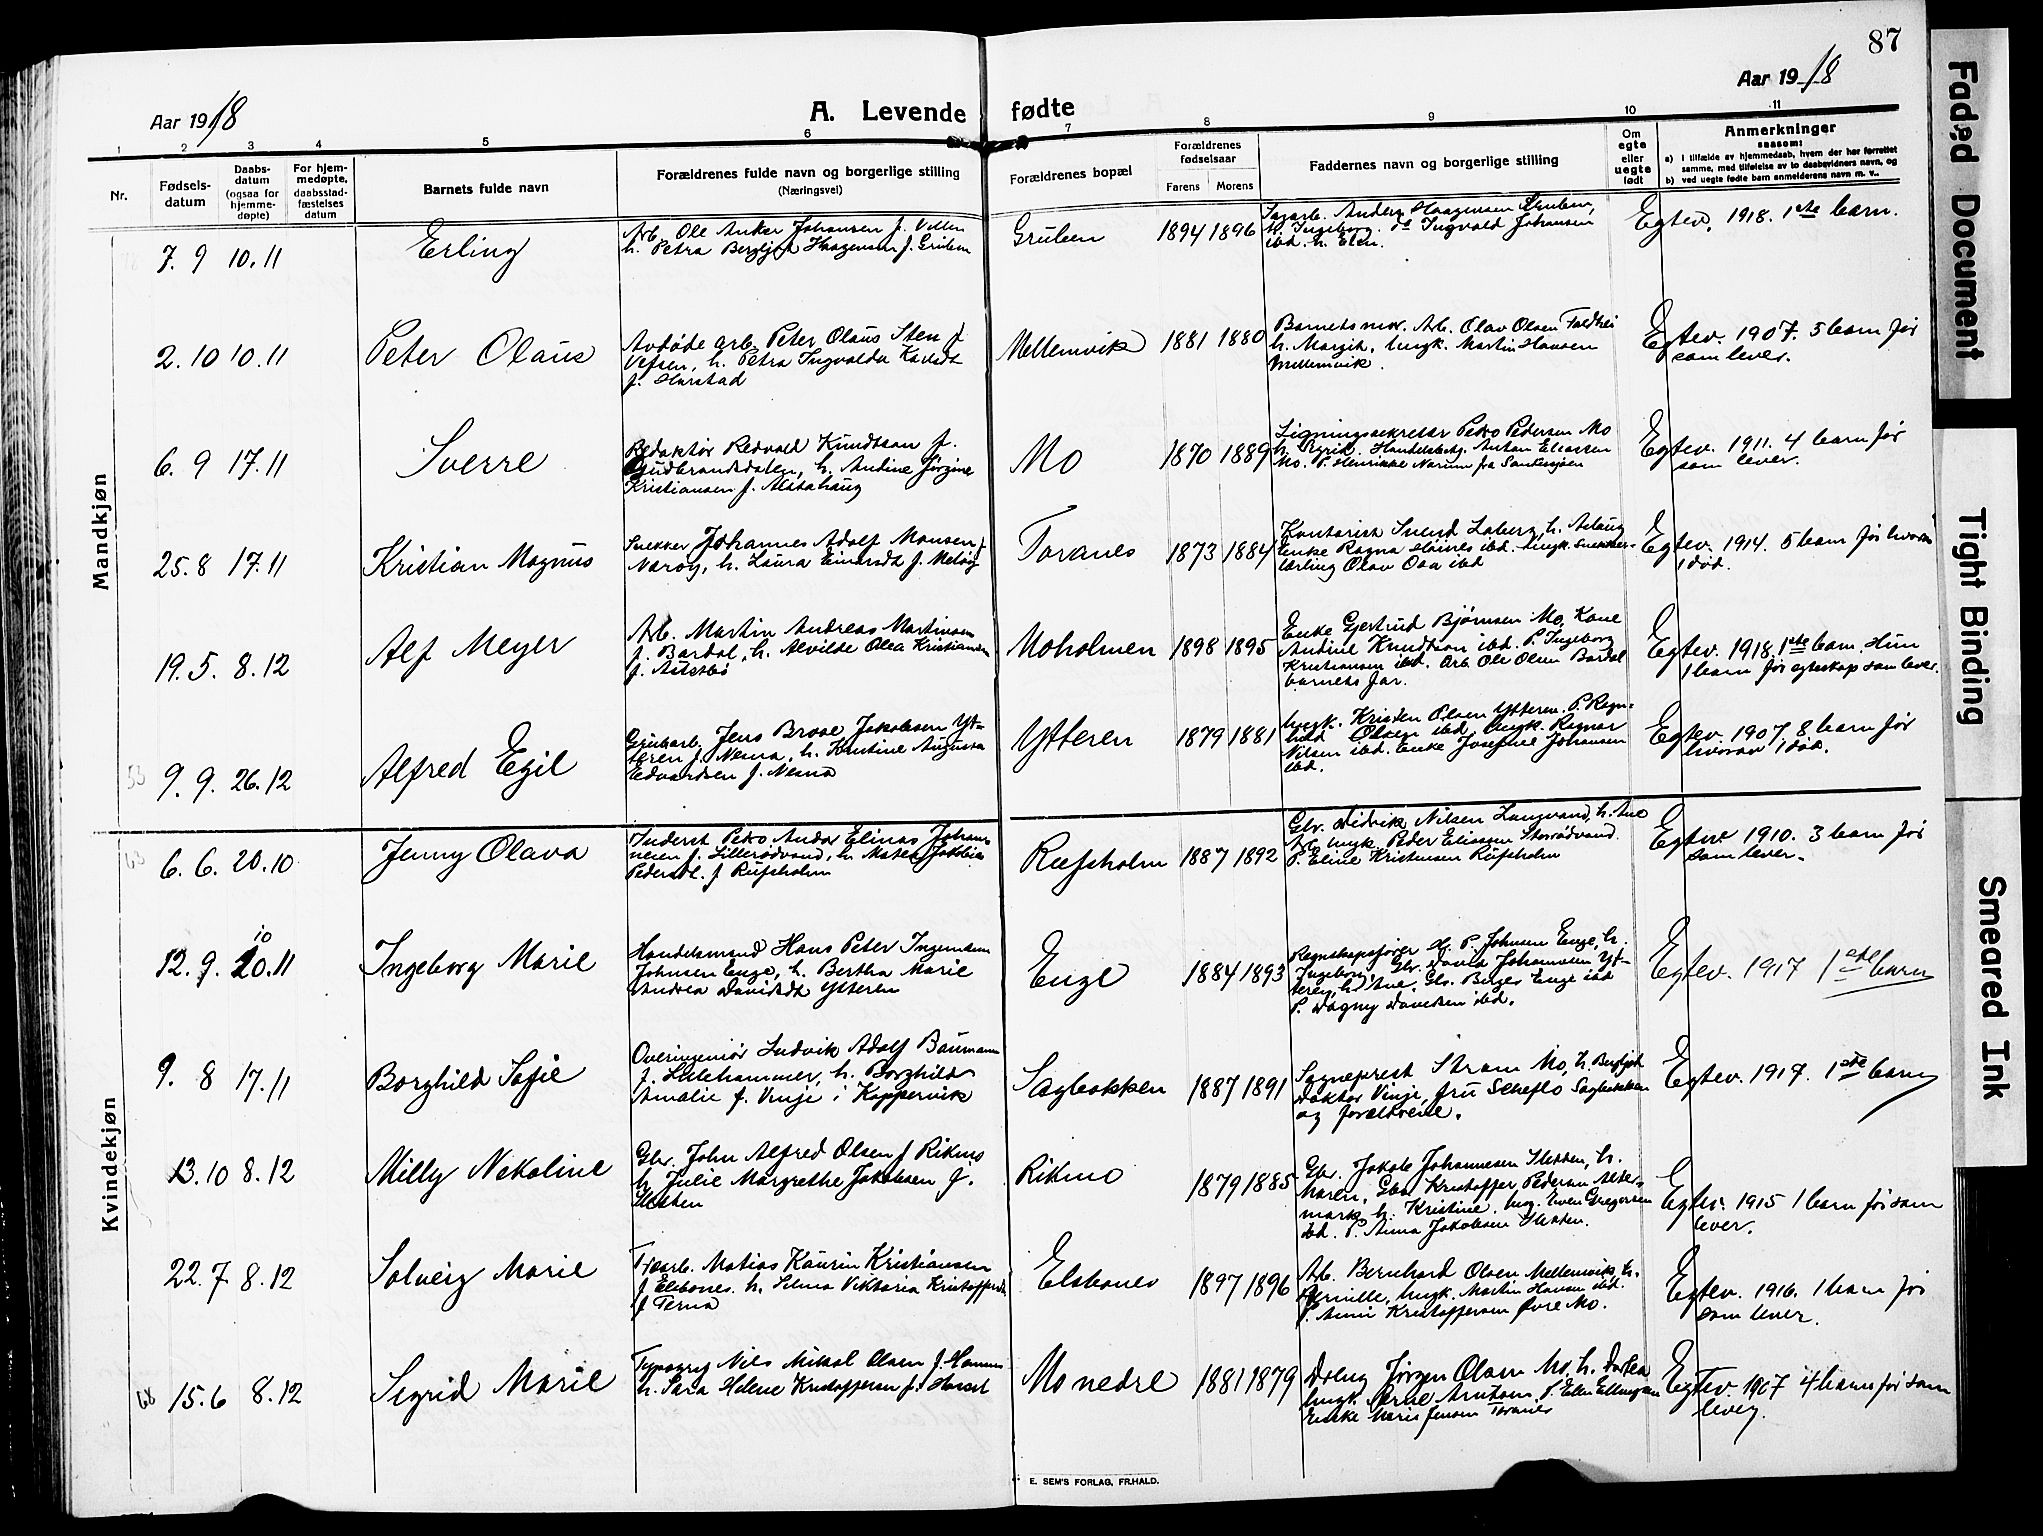 87
Aar 1918
A. Levende fødte
Aar 1918
1 2 3 4 5 6 7 8 9 10 11
Nr.
Fødsels-
datum
Daabs-
datum
(ogsaa for
hjemme-
døpte)
For hjem-
medøpte,
daabsstad-
fæstelses
datum
Barnets fulde navn
Forældrenes fulde navn og borgerlige stilling
(Næringsvei)
Forældrenes bopæl
Forældrenes
fødselsaar
Farens Morens
Faddernes navn og borgerlige stilling
Om
egte
eller
uegte
født
Anmerkninger
saasom:
a) I tilfælde av hjemmedaab, hvem der har forrettet
samme, med tilføielse av to daabsvidners navn, og
b) ved uegte fødte barn anmelderens navn m. v..
Mandkjøn
7. 9 10. 11 Erling
Arb. Ole Anker Johansen f. Vefsn
h. Petra Bergljot Haagensen f. Gruben
Gruben 1894 1896
Anders Haagensen Gruben,
h. Ingeborg. Ingvald Johansen
ibd. h. Elen.
Egtev. 1918. 1ste barn.
2. 10 10. 11 Peter Olaus
Avdøde arb. Peter Olaus Sten f.
Vefsen, h. Petra Ingvalda Karlsdt
f. Harstad
Mellemvik 1881 1880
Barnets mor. Arb. Olav Olsen
h. Margit, ungk. Martin Hansen
Mellemvik.
Egtev. 1907. 3 barn før
som lever.
6. 9 17. 11 Sverre
Redaktør Redvald Knudtson f.
Gudbrandsdalen, h. Andine Jørgine
Kristiansen f. Alstahaug
Mo 1870 1889
Ligningssekretær Petro Pedersen Mo
h. Handelsbetj. Anton Eliassen
Mo. P. Henrikke Norum fra Sandnessjøen
Egtev. 1911. 4 barn før
som lever.
25. 8 17. 11 Kristian Magnus
Snekker Johannes Adolf Monsen f.
Nærøy, h. Laura Einarsdt f. Meløy
Toranes 1873 1884
Kontorist Svend Laberg h. Aslaug
Enke Ragna ibd. Ungk. snekker-
lærling Olav Oaa ibd
Egtev. 1914. 5 barn før hvorav
1 død.
19. 5. 8. 12 Alf Meyer
Arb. Martin Andreas Martinsen
f. Bardal, h. Alvilde Olea Kristiansen
f. Austbø
Moholmen 1898 1895
Enke Gjertrud Bjørnsen Mo, Kone
Andine Knudtson ibd. P. Ingeborg
Kristiansen ibd. Arb. Ole Olsen Bardal
barnets far.
Egtev. 1918. 1ste barn. Hun
1 barn før egteskap som lever.
53 9. 9. 26. 12 Alfred Egil
Grubearb. Jens Brose Jakobsen Yt-
teren f. Nesna, h. Kristine Augusta
Edvardsen f. Nesna
Ytteren 1879 1881
Ungk. Kristen Olsen Ytteren. P. Ragn-
hild Olsen ibd, Ungk. Ragnar
Nilsen ibd. Enke Josefine Johansen
ibd.
Egtev. 1907. 8 barn før
hvorav 1 død.
Kvindekjøn
63 6. 6. 20. 10 Jenny Olava
Inderst Petro Andor Elinas Johan-
nesen f. Lillerødvand, h. Jakobine
Pedersdt. f. Rufsholm
Rufsholm 1887 1892
Gbr. Didrik Nilsen Langvand, h. Ane
Arb. ungk. Peder Eliassen Storrødvand.
P. Eline Kristensen Rufsholm
Egtev. 1910. 3 barn før
som lever.
10
12. 9. 10. 11 Ingeborg Marie
Handelsmand Hans Peter Ingemann
Johnsen Enge, h. Bertha Marie
Andrea Davidsdt Ytteren
Enge 1884 1893
Regnskapsfører H. P. Johnsen Enge, h.
Ingeborg, Gbr. David Johannesen Yt-
teren, h. Ane. Gbr. Enge ibd
P. Dagny Davidsen ibd.
Egtev. 1917 1ste barn
9. 8 17. 11 Borghild Sofie
Overingeniør Ludvik Adolf Baumann
f. Lillehammer, h. Borghild
Amalie f. Vinje i Koppervik
Sagbakken 1887 1891
Sogneprest Strøm Mo, h. Bergljot
Doktor Vinje, fru Scheflo Sagbakken
og forældrene.
Egtev. 1917. 1ste barn
13. 10 8. 12 Milly Nekoline
Gbr. John Alfred Olsen f. Rikmo
h. Julie Margrethe Jakobsen f.
Rikmo 1879 1885
Gbr. Jakob Johannesen h.
Maren, Gbr. Kristoffer Pedersen Alter-
mark h. Kristine. Ung. Even Gregersen
ibd. P. Anna Jakobsen
Egtev. 1915 1 barn før som
lever.
22. 7 8. 12 Solveig Marie
Matias Kaurin Kristiansen
h. Selma Viktoria Kristoffersdt
f. Terna
1897 1896
Arb. Bernhard Olsen Mellemvik, h.
Pernille, Ungk. Martin Hansen ibd.
P. Anni Kristoffersen Øvre Mo.
Egtev. 1916. 1 barn før
som lever.
68 15. 6 8. 12 Sigrid Marie
Typograf Nils Mikal Olsen f.
h. Sara Helene Kristoffersen f.
Mo nedre 1881 1879
Jørgen Olsen Mo, h. Dortea
Ungk. Arntsen, P. Elen Ellingsen
Enke Maris Jensen Toranes
Egtev. 1907 4 barn før som
lever.
E. SEM'S FORLAG, FR.HALD.
Faded Document
Tight Binding
Smeared Ink